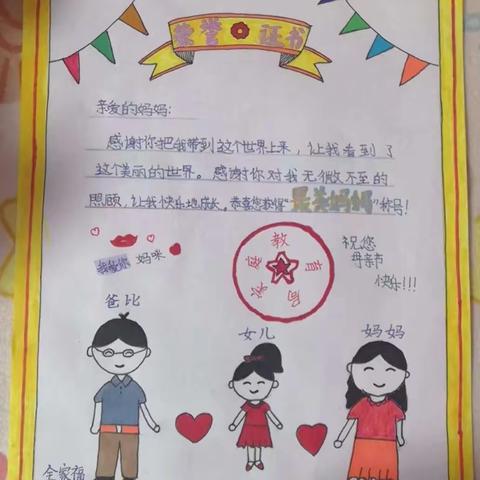 荣誉证书
亲爱的妈妈:
感谢你把我带到这个世界上来,让我看到了
这个美丽的世界。感谢你对我无微不至的
照顾,让我快乐地成长。恭喜您获得“最美妈妈”称号!
我爱你 妈咪
家庭教育局
祝您
母亲节
快乐!!!
爸比
女儿
妈妈
全家福